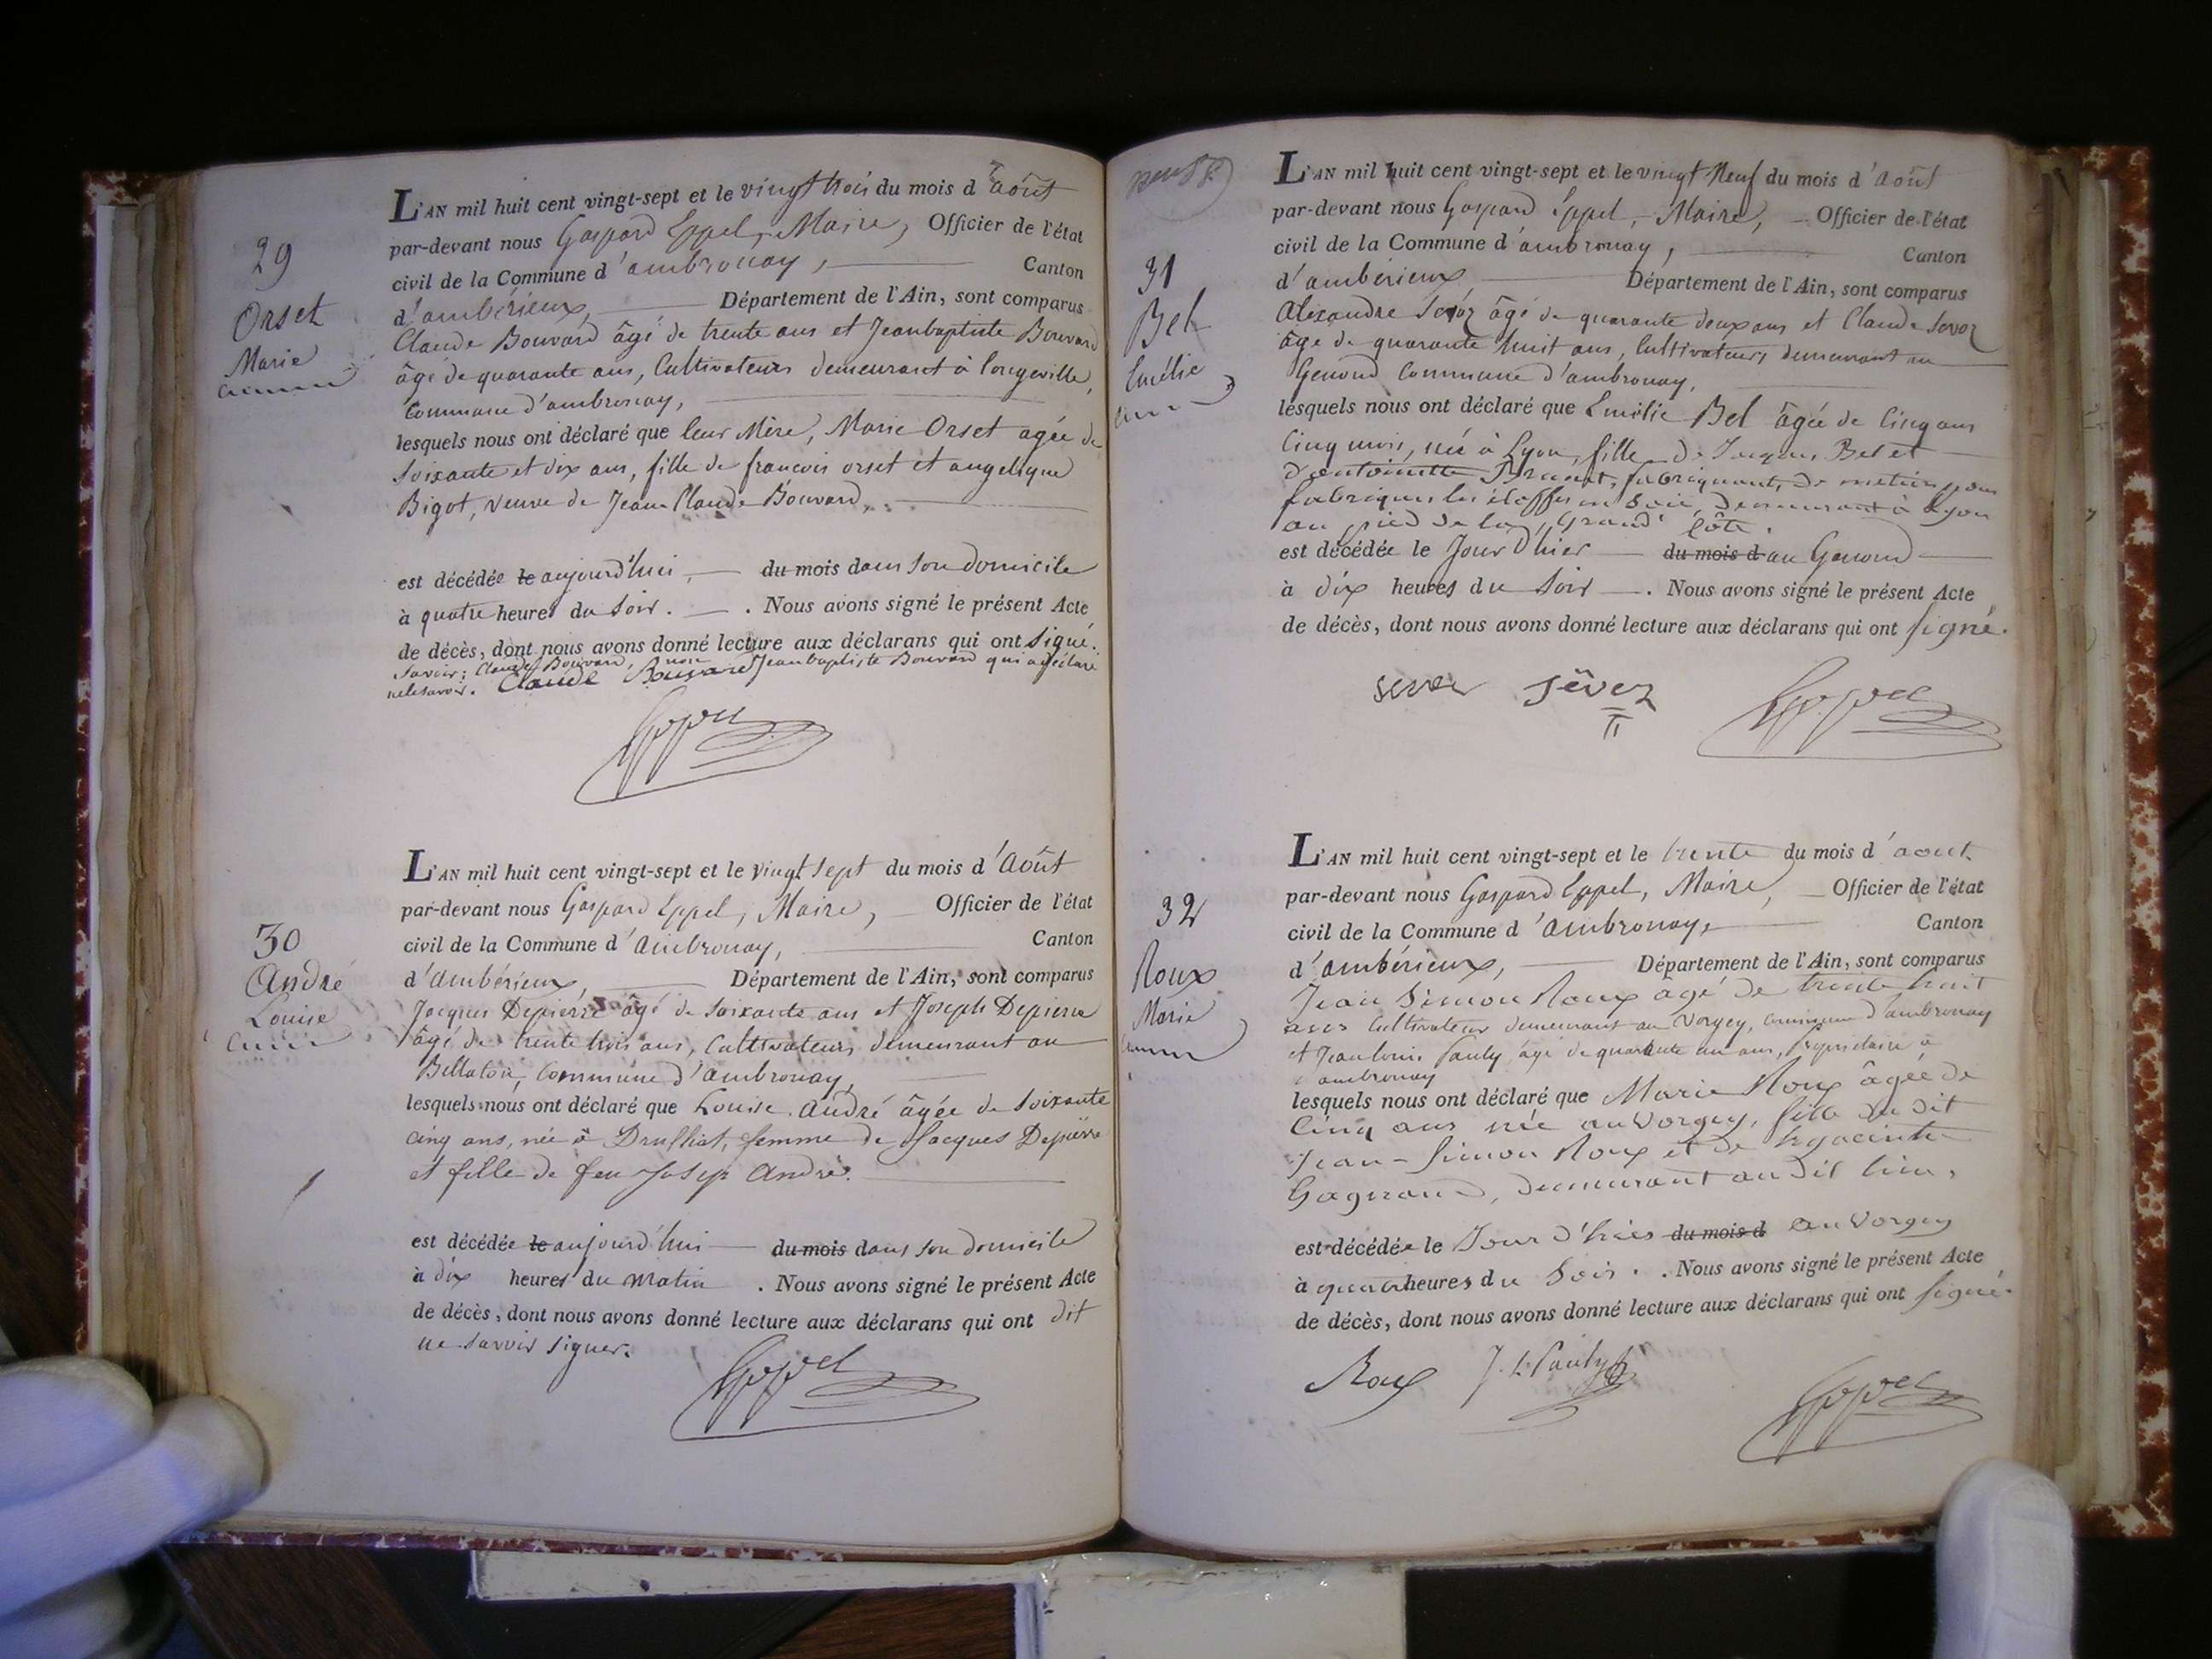 29
Orset
Marie
L'AN mil huit cent vingt-sept et le vingt trois du mois d'août
par-devant nous Gaspard Eppel, Maire, Officier de l'état
civil de la Commune d'ambronay, Canton
d'ambérieux, Département de l'Ain, sont comparus
Claude Bouvard âgé de trente ans et Jeanbaptiste Bouvard
âgé de quarante ans, Cultivateurs demeurant à longeville,
Commune d'ambronay,
lesquels nous ont déclaré que leur Mère, Marie Orset agée de
Soixante et dix ans, fille de francois orset et angelique
Bigot, veuve de Jean Claude Bouvard,
est décédée le aujourd'hui, du mois dans son domicile
à quatre heures du Soir. . Nous avons signé le présent Acte
de décès, dont nous avons donné lecture aux déclarans qui ont signé.
Savoir; Claude Bouvard, non Jeanbaptiste Bouvard qui a déclaré
ne le savoir. Claude Bouvard
Eppel
30
André
Louise
L'AN mil huit cent vingt-sept et le vingt sept du mois d'Août
par-devant nous Gaspard Eppel, Maire, Officier de l'état
civil de la Commune d'Ambronay, Canton
d'Ambérieux, Département de l'Ain, sont comparus
Jacques Depierre âgé de soixante ans et Joseph Depierre
âgé de trente trois ans, Cultivateurs demeurant au
Bellaton, Commune d'ambronay,
lesquels nous ont déclaré que Louise André âgée de soixante
cinq ans, née à Druilliat, femme de Jacques Depierre
et fille de feu Josep André.
est décédée le aujourd'hui du mois dans son domicile
à dix heures du matin . Nous avons signé le présent Acte
de décès, dont nous avons donné lecture aux déclarans qui ont dit
ne savoir signer.
Eppel
31
Bel
Emélie
L'AN mil huit cent vingt-sept et le vingt Neuf du mois d'Août
par-devant nous Gaspard Eppel, Maire, Officier de l'état
civil de la Commune d'ambronay, Canton
d'ambérieux Département de l'Ain, sont comparus
Alexandre Sevoz âgé de quarante deux ans et Claude Sevoz
âgé de quarante huit ans, Cultivateurs demeurant au
Genoud Commune d'ambronay,
lesquels nous ont déclaré que Emélie Bel âgée de Cinq ans
Cinq mois, née à Lyon, fille de Jacques Bel et
d'antoinette fabriquants de métiers pour
fabriquer les étoffes en Soie, demeurant à Lyon
au pied de la Grand' Côte.
est décédée le Jour D'hier du mois d au Genoud
à dix heures du Soir . Nous avons signé le présent Acte
de décès, dont nous avons donné lecture aux déclarans qui ont signé.
sevoz sêvoz Eppel
32
Roux
Marie
L'AN mil huit cent vingt-sept et le trente du mois d'aout
par-devant nous Gaspard Eppel, Maire, Officier de l'état
civil de la Commune d'Ambronay, Canton
d'ambérieux, Département de l'Ain, sont comparus
Jean Simon Roux agé de trente huit
ans Cultivateur demeurant au Vorgey, Commune d'ambronay
et Jean louis Pauly âgé de quarante un ans, Propriétaire à
ambronay
lesquels nous ont déclaré que Marie Roux âgée de
Cinq ans née au Vorgey, fille du dit
Jean-Simon Roux et de hyacinte
Gagnaud, demeurant au dit lieu,
est décédée le Jour d'hier du mois d au Vorgey
à quatre heures du Soir. . Nous avons signé le présent Acte
de décès, dont nous avons donné lecture aux déclarans qui ont signé.
Roux J. L. Pauly Eppel